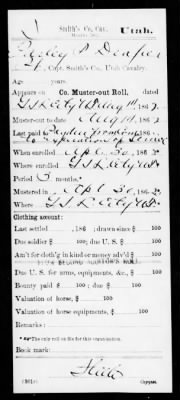 Smith's Co. Cav. Utah.
Draper
Capt. Smith's Co., Utah Cavalry.
Age years.
Appears on Co. Muster-out Roll, dated
G S L City U T Aug 14, 1862.
Muster-out to date Aug 14, 1862.
Last paid to
to expiration of
When enrolled Apl. 30, 1862.
Where enrolled G S L City U T
Period 3 months.
Mustered in Apl 30, 1862.
Where G S L City U T
Clothing account:
Last settled , 186 ; drawn since $ 100
Due soldier $ 100; due U. S. $ 100
Am't for cloth'g in kind or money adv'd $ 100
Due U. S. for arms, equipments, &c., $ 100
Bounty paid $ 100; due $ 100
Valuation of horse, $ 100
Valuation of horse equipments, $ 100
Remarks:
*The only roll on file for this command.
Book mark:
(861c) Copyist.